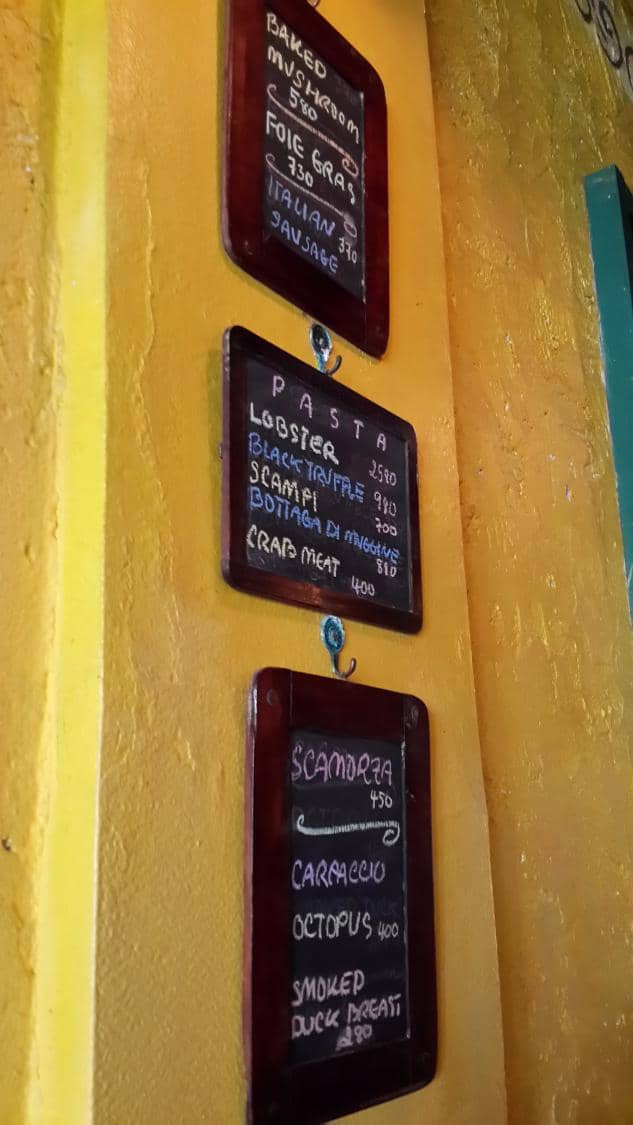 BAKED
MUSHROOM
580
FOIE GRAS
730
ITALIAN
SAUSAGE 370
PASTA
LOBSTER 2580
BLACK TRUFFLE 980
SCAMPI 700
BOTTAGA DI MUGGINE 880
CRAB MEAT 400
SCAMORZA
450
CARPACCIO
OCTOPUS 400
SMOKED
DUCK BREAST
280